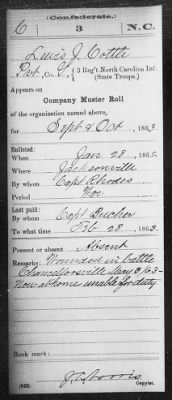 (Confederate.)
C 3 N.C.
Lewis J. Cottle
Pvt, Co. G, 3 Reg't North Carolina Inf.
(State Troops.)
Appears on
Company Muster Roll
of the organization named above,
for Sept & Oct, 1863.
Enlisted:
When Jan 28, 1862.
Where Jacksonville
By whom Capt Rhodes
Period War
Last paid:
By whom Capt
To what time Feb 28, 1863.
Present or absent Absent
Remarks: Wounded in battle
Chancellorsville May 3/63-
Now at home unable for duty
Book mark:
(642)
Copyist.